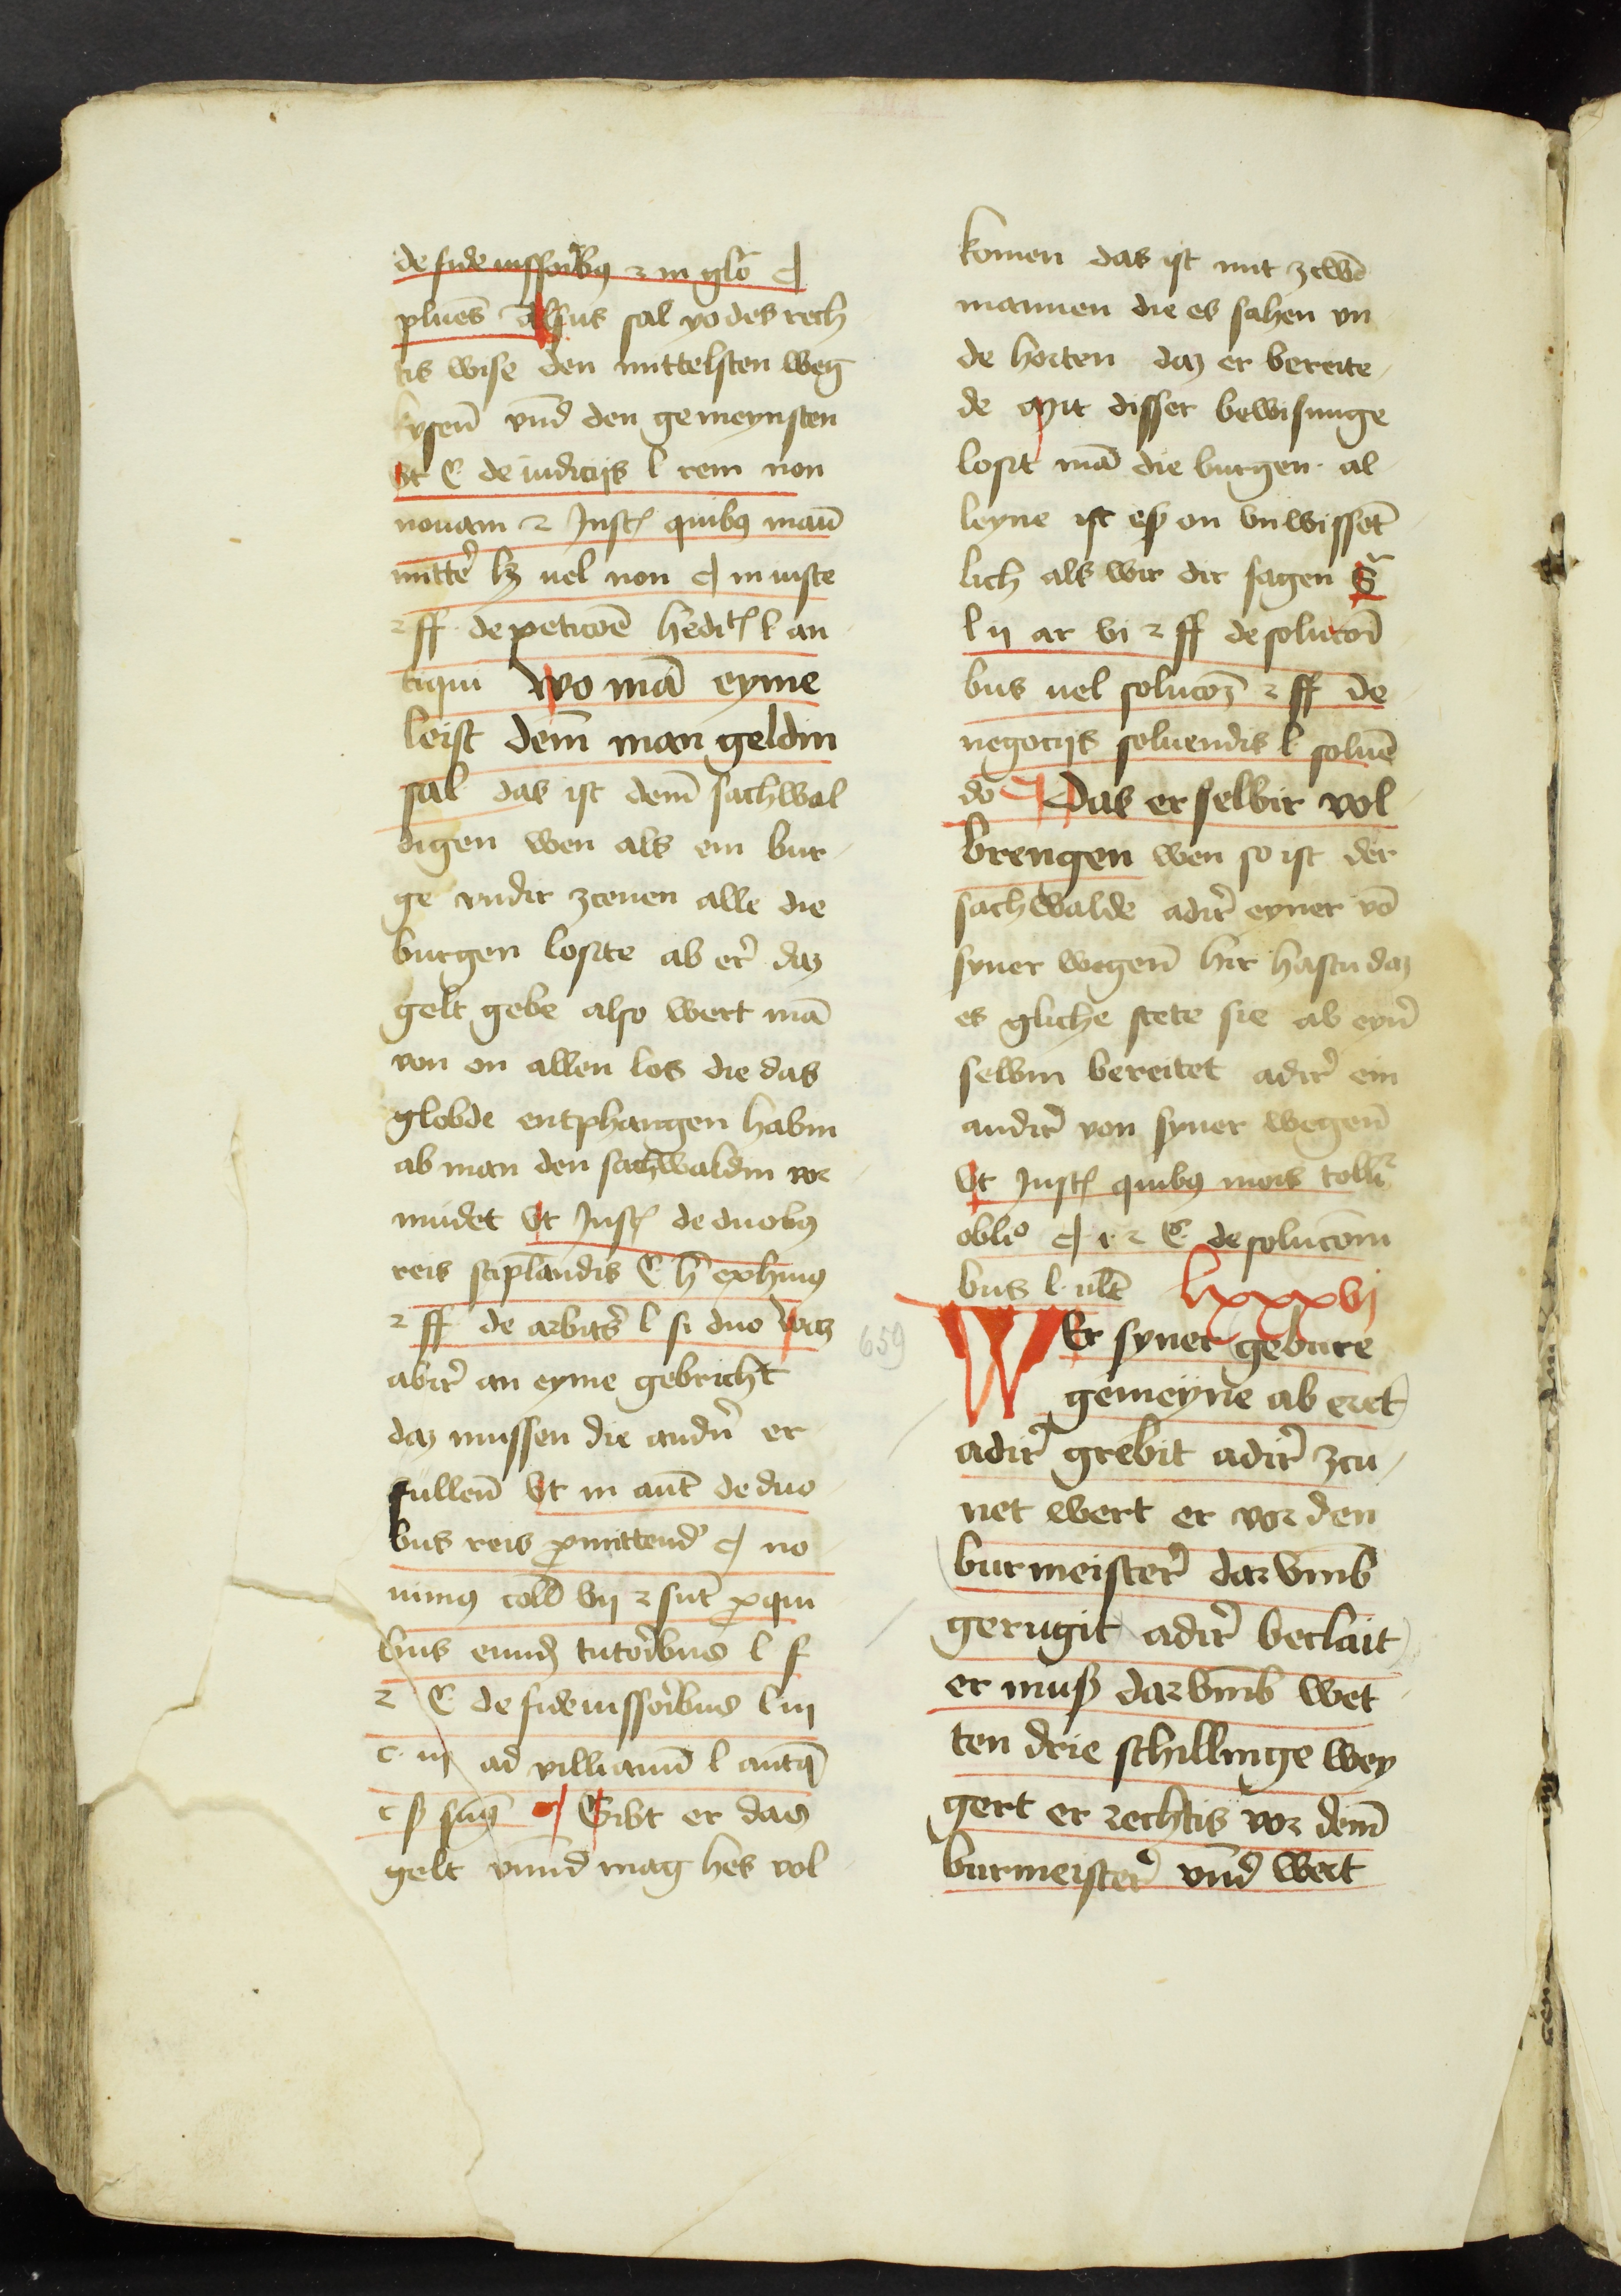 de fideiussoribꝰ ⁊ in glo ¶
plures Alsus sal yo des rech
tis wise den mittelsten weg
kysen̄ vnd̄ den gemeynsten
Vt C de iudicijs l rem non
nouam ⁊ Inst quibꝫ mau̅
mitte̓ lꝫ uel non ¶ in iuste
⁊ ff de peticōe hedit̄ l an
tiqui Wo mā eyme
leist dem̄ man geldin
sal das ist dem̄ sachwal
digen wen als ein bur
ge vndir zcenen alle die
burgen loste ab er̓ daz
gelt gebe also wert mā
von on allen los die das
globde entphangen habin
ab man den sachwaldin vor
mudet Vt Inst de duobꝰ
reis stiplandis C h̄
⁊ ff de arbitˢ l si duo Waz
abir̓ an eyme gebricht
daz mussen die andn̓ er
fullen̄ Vt in aut̄ de duo
bus reis ꝓmittend ¶ no
uimꝰ coll vij ⁊
bus tutoribus l f
⁊ C de fideiussoribus l iij
c. iij ad villianū l antq̄
¶ Gibt er das
gelt vnnd mag hes vol
komen das ist mit zcwē
mannen die es sahen vn
de horten daz er bereite
de Mit disser bewisunge
lost mā die burgen al
leyne ist eß on vnwisset̄
lich als wir dir sagen S̃
l ij ar vi ⁊ ff de solucoī
bus uel solucoꝫ ⁊ ff de
negocijs soluendis l soluē
do ¶ Das er selbir vol
brengen wen so ist der
sachwalde adir̓ eyner vō
syner wegen̄ hir hastu daz
es gliche stete sie ab eyn̓
selbin bereitet adir̓ ein
andir̓ von syner wegen̄
Vt Inst quibꝫ mois tollr̄
oblio ¶ 1 ⁊ C de solucōni
bus l ult̄ lxxxvj
WEr syner gebure
gemeyne ab eret
adir̓ grebit adir̓ zcu
net wert er vor den
burmeister̓ darvmb
gerugit adir̓ beclait
er muß darvmb wet
ten drie schillinge wey
gert er rechtis vor dem̄
burmeister̓ vnd̄ wert
659